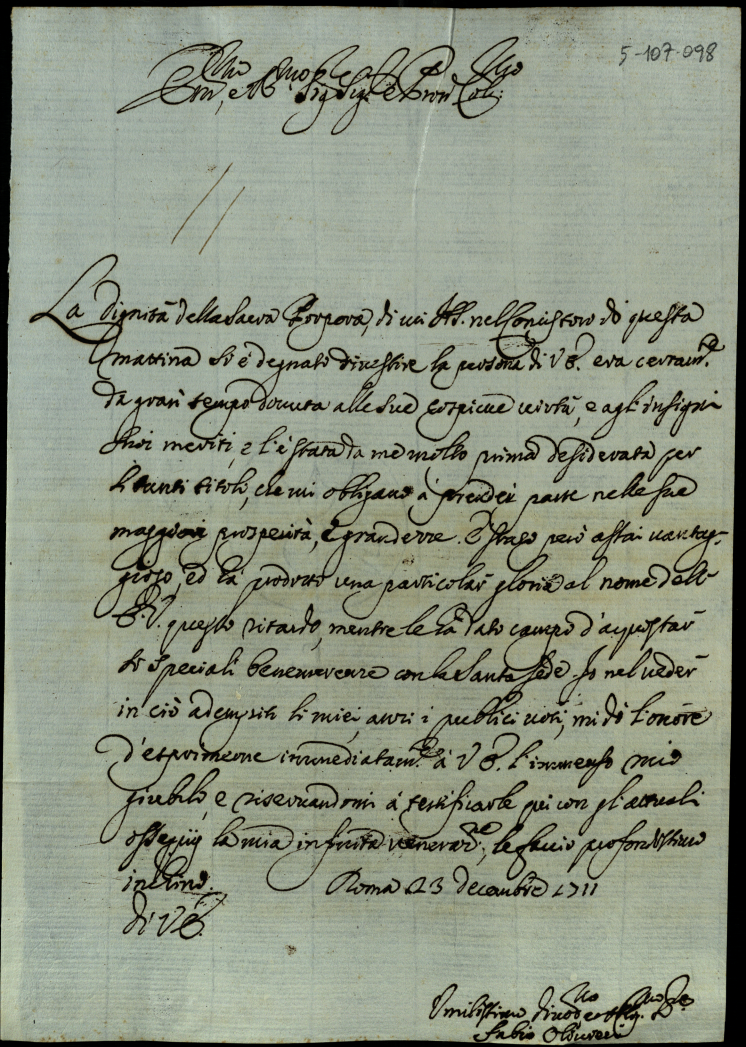 5-107-098
Em.mo, e R.mo Sig.r Sig.r e Pron Col.mo
La dignità della Sacra Porpora, di cui N.S. nel Concistoro di questa
mattina si è degnato di vestire la persona di V.E. era certam.te
da gran tempo dovuta alle sue cospicue virtù, e agl'insigni
suoi meriti, e l'è stata da me molto prima desiderata per
li tanti titoli, che mi obligano à prender parte nelle sue
maggiori prosperità, e grandezze. È stato però assai vantag-
gioso, ed hà prodotto una particolar gloria al nome dell'
E.V. questo ritardo, mentre le hà dato campo d'acquistar
si speciali benemerenze con la Santa Sede. Io nel veder
in ciò adempiti li miei, anzi i publici voti, mi dò l'onore
d'esprimerne immediatam.te à V.E. l'immenso mio
giubilo, e riservandomi à testificarle poi con gl'attuali
ossequij la mia infinita veneraz.ne, le faccio profondissimo
inchino. Roma 23 decembre 1711
di V.E.
Umilissimo divot.mo et oblig.mo S.re
Fabio Olivieri